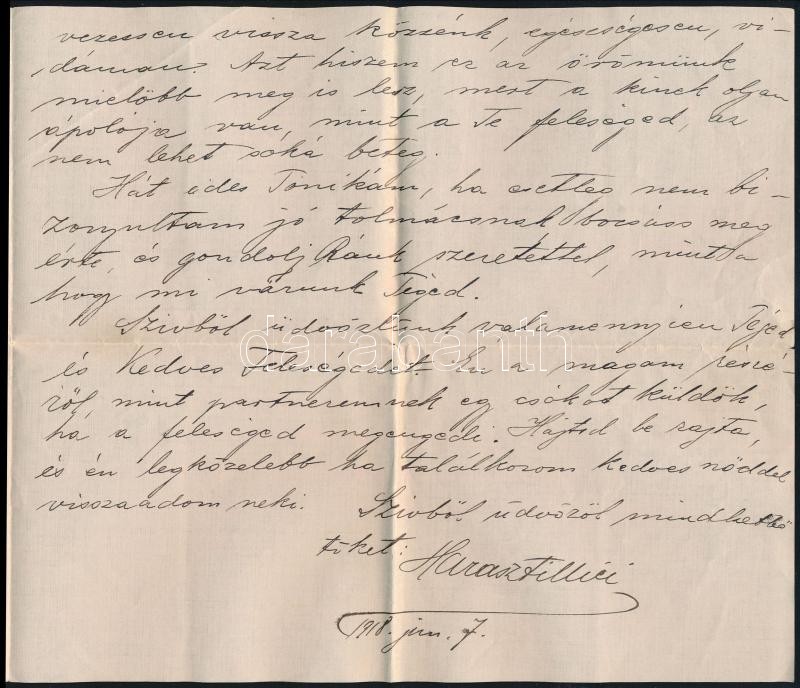 vezessen vissza közzénk, egésségesen, vi-
dáman? Azt hiszem ez az örömünk
mielőbb meg is lesz, mert a kinek olyan
ápolója van, mint a Te feleséged, az
nem lehet soká beteg.
Hát édes Tónikám, ha esetleg nem bi-
zonyultam jó tolmácsnak bocsáss meg
érte, és gondolj Ránk szeretettel, mint a
hogy mi várunk Téged.
Szivből üdvözlünk valamennyien Téged
és Kedves Feleségedet. Én a magam részé-
ről, mint partneremnek egy csókot küldök,
ha a feleséged megengedi. Hajtsd be rajta,
és én legközelebb ha találkozom kedves nőddel
visszaadom neki.
Szivből üdvözöl mindkettő
tőket:
Haraszti Mici
1918. jun. 7.
darabanth